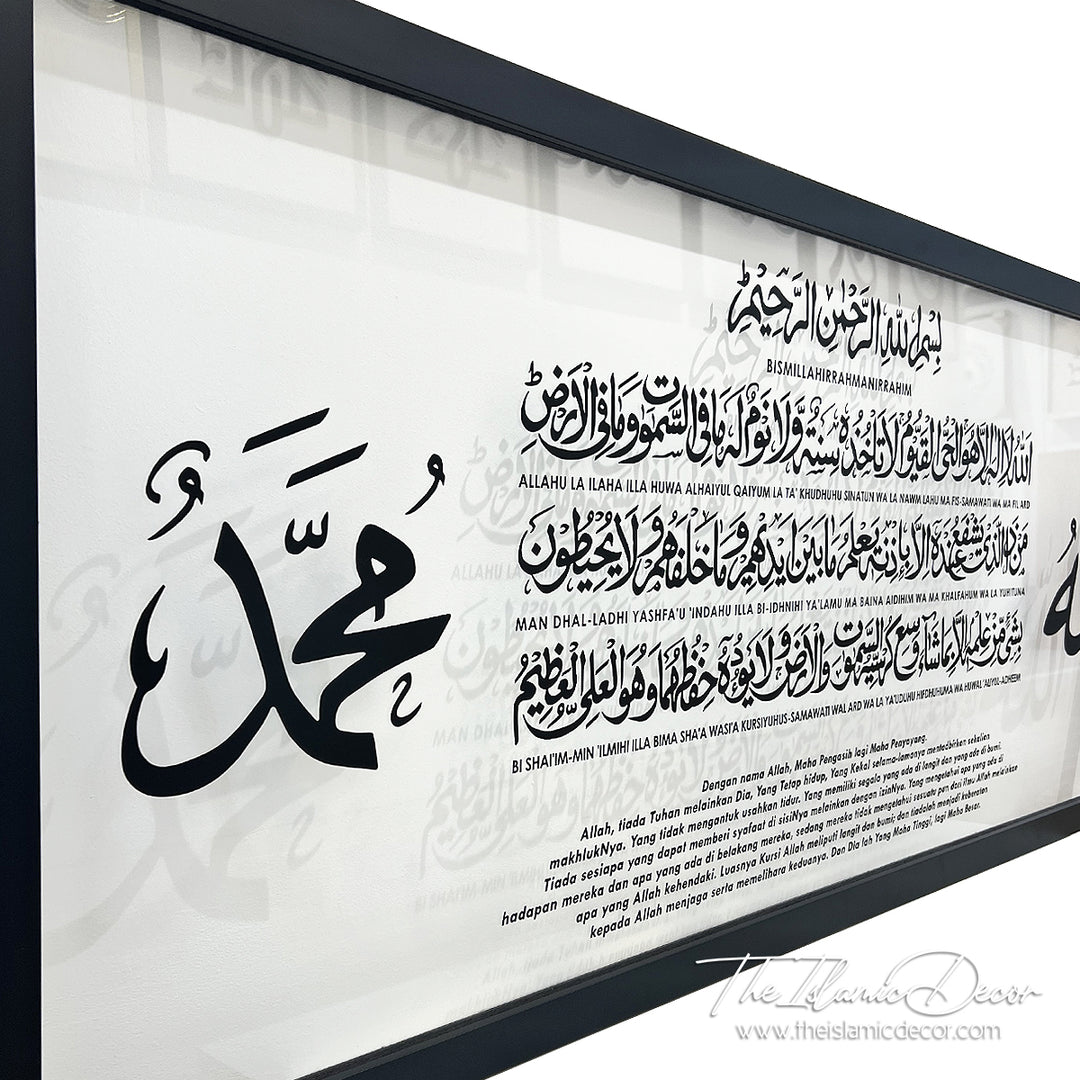 محمد
بِسْمِ اللهِ الرَّحْمٰنِ الرَّحِيْمِ
BISMILLAHIRRAHMANIRRAHIM
اَللهُ لَا اِلٰهَ اِلَّا هُوَ الْحَيُّ الْقَيُّوْمُ لَا تَأْخُذُهٗ سِنَةٌ وَّلَا نَوْمٌ لَهٗ مَا فِى السَّمٰوٰتِ وَمَا فِى الْاَرْضِ
ALLAHU LA ILAHA ILLA HUWA ALHAIYUL QAIYUM LA TA' KHUDHUHU SINATUN WA LA NAWM LAHU MA FIS-SAMAWATI WA MA FIL ARD
مَنْ ذَا الَّذِيْ يَشْفَعُ عِنْدَهٗ اِلَّا بِاِذْنِهٖ يَعْلَمُ مَا بَيْنَ اَيْدِيْهِمْ وَمَا خَلْفَهُمْ وَلَا يُحِيْطُوْنَ
MAN DHAL-LADHI YASHFA'U 'INDAHU ILLA BI-IDHNIHI YA'LAMU MA BAINA AIDIHIM WA MA KHALFAHUM WA LA YUHITUNA
بِشَيْءٍ مِّنْ عِلْمِهٖ اِلَّا بِمَا شَاءَ وَسِعَ كُرْسِيُّهُ السَّمٰوٰتِ وَالْاَرْضَ وَلَا يَئُوْدُهٗ حِفْظُهُمَا وَهُوَ الْعَلِىُّ الْعَظِيْمُ
BI SHAI'IM-MIN 'ILMIHI ILLA BIMA SHA'A WASI'A KURSIYUHUS-SAMAWATI WAL ARD WA LA YA'UDUHU HIFDHUHUMA WA HUWAL 'ALIYUL-ADHEEM
Dengan nama Allah, Maha Pengasih lagi Maha Penyayang.
Allah, tiada Tuhan melainkan Dia, Yang Tetap hidup, Yang Kekal selama-lamanya mentadbirkan sekalian
makhlukNya. Yang tidak mengantuk usahkan tidur. Yang memiliki segala yang ada di langit dan yang ada di bumi.
Tiada sesiapa yang dapat memberi syafaat di sisiNya melainkan dengan izinNya. Yang mengetahui apa yang ada di
hadapan mereka dan apa yang ada di belakang mereka, sedang mereka tidak mengetahui sesuatu pun dari ilmu Allah melainkan
apa yang Allah kehendaki. Luasnya Kursi Allah meliputi langit dan bumi; dan tiadalah menjadi keberatan
kepada Allah menjaga serta memelihara keduanya. Dan Dia lah Yang Maha Tinggi, lagi Maha Besar.
The Islamic Decor
www.theislamicdecor.com